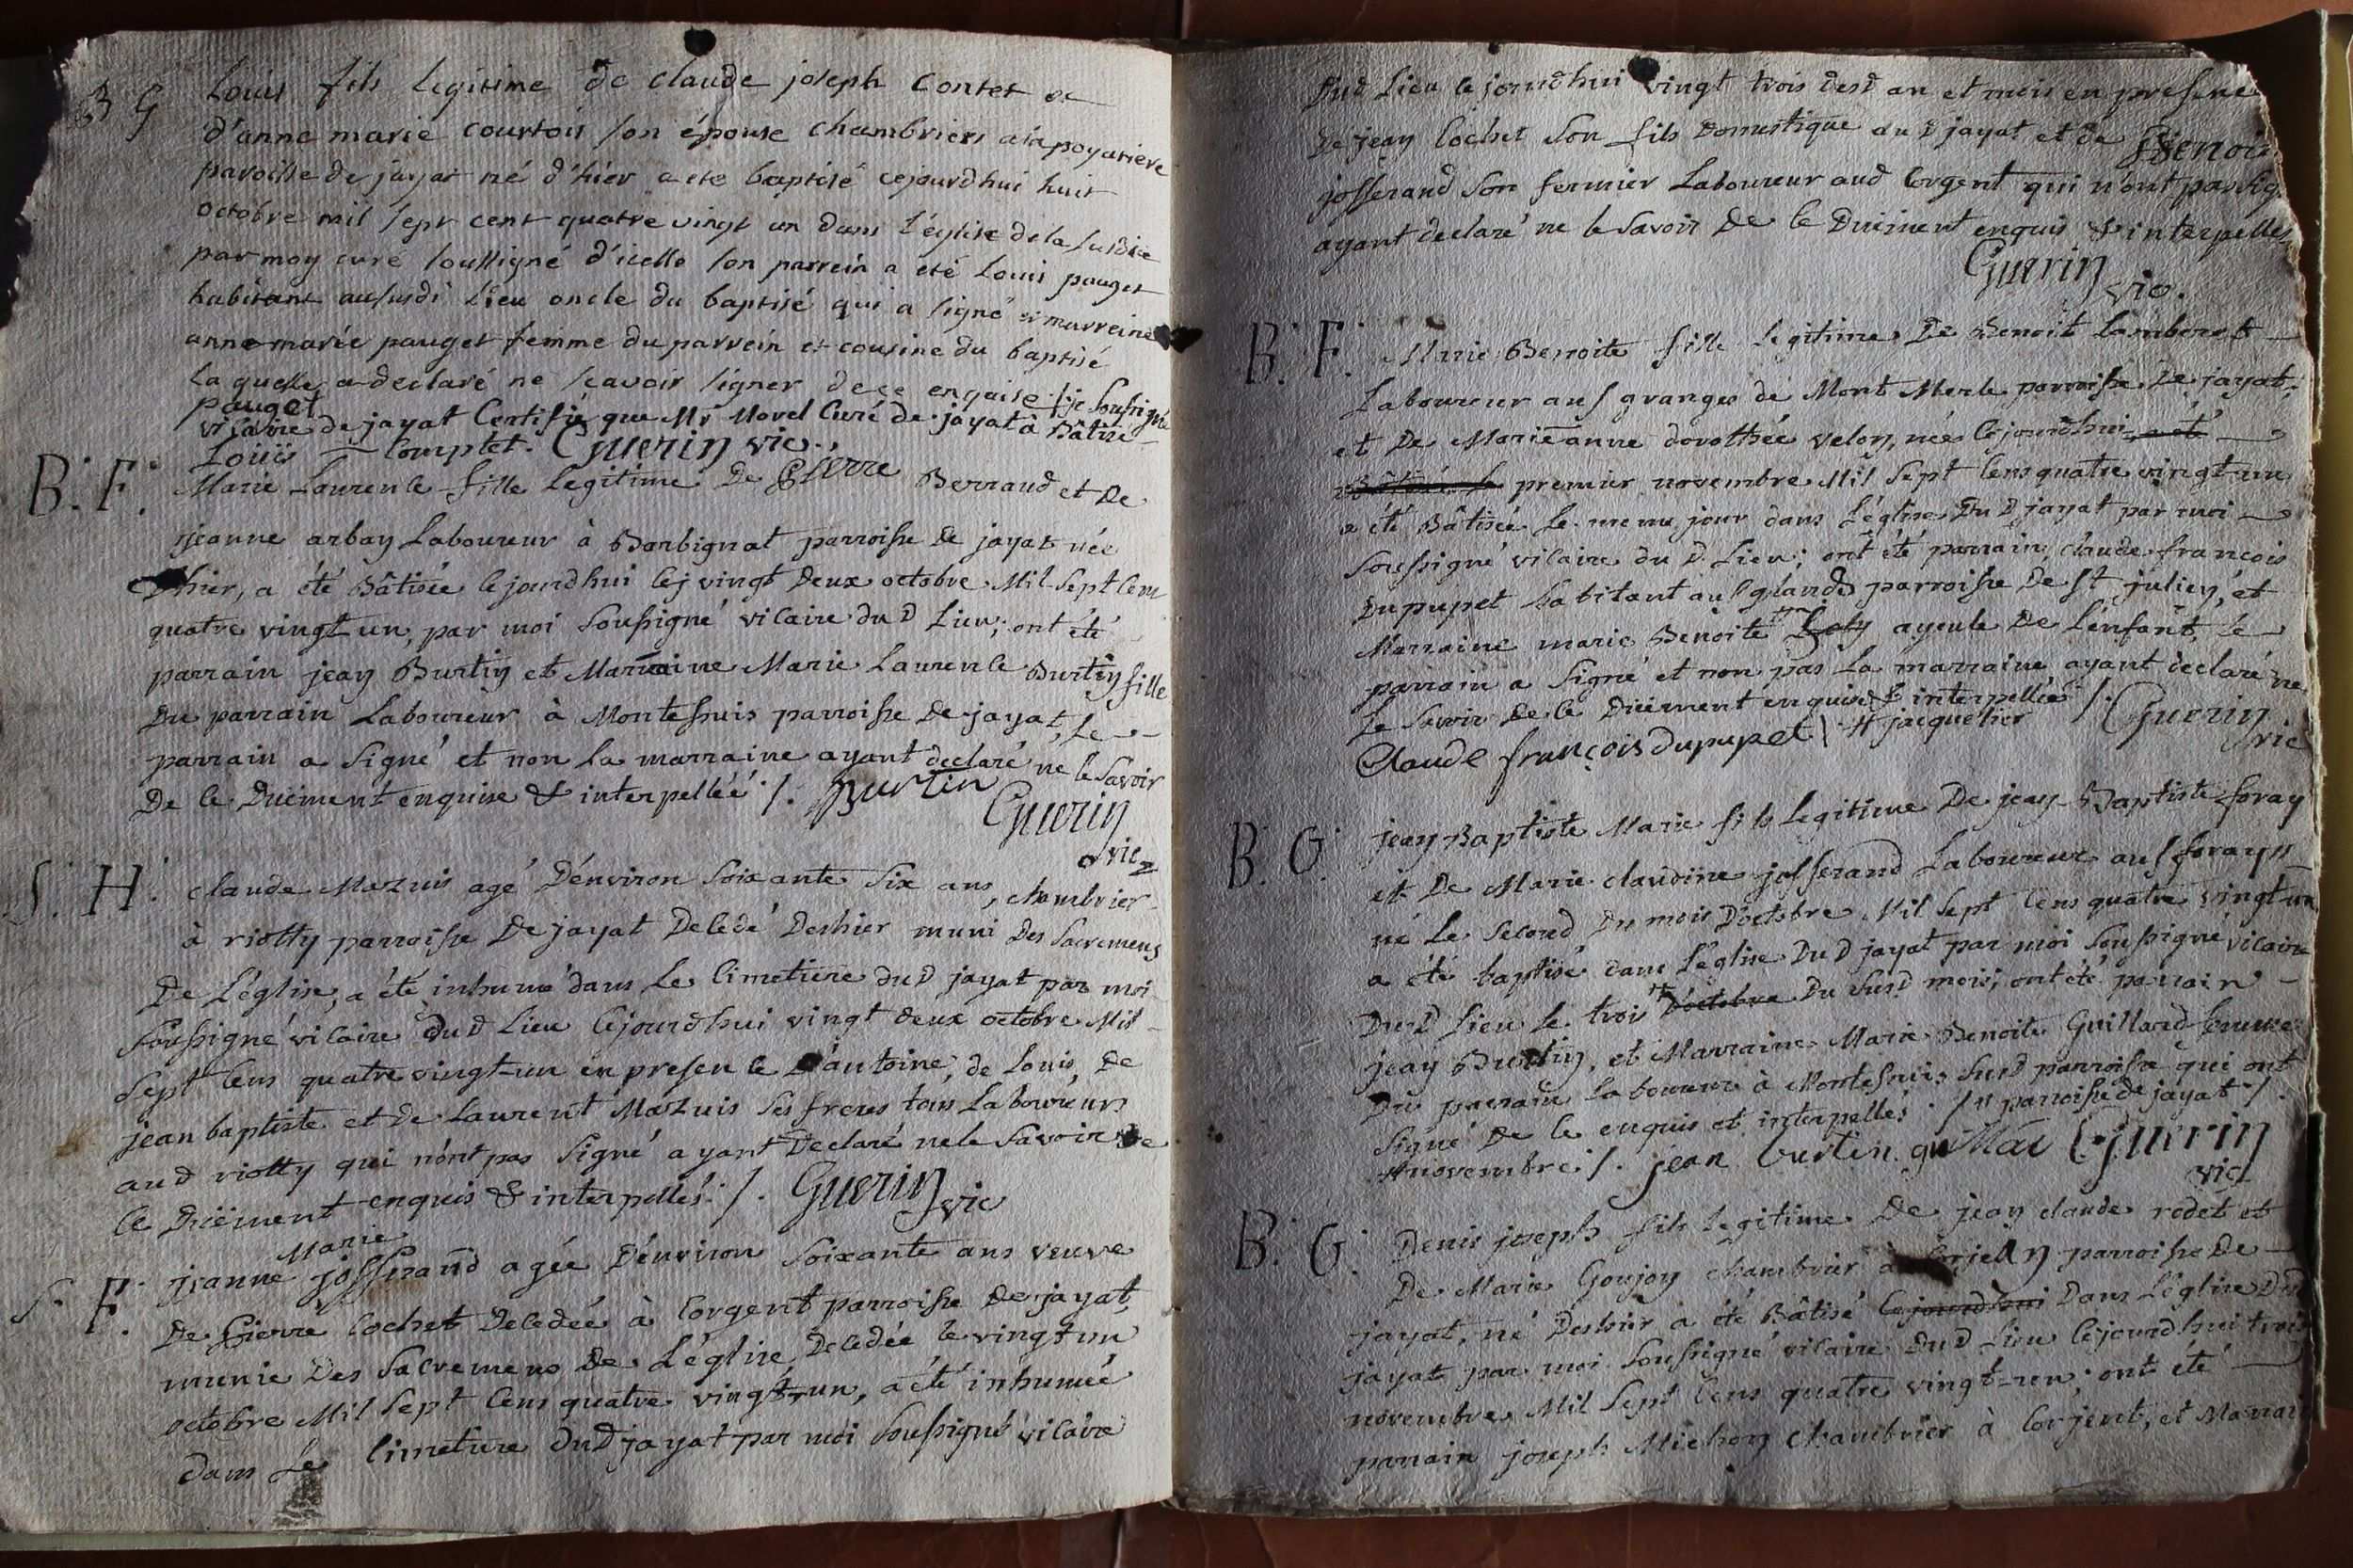 B G Louis fils legitime de claude joseph Contet et
d'anne marie courtois son épouse chambriers a la poyatiere
paroisse de jayat né d'hier a eté baptisé cejourdhui huit
octobre mil sept cent quatre vingt un dans l'église de la susdite
par moy curé soussigné d'icelle son parrein a eté Louis pauget
habitant au susdi lieu oncle du baptisé qui a signé et marreine
anne marie pauget femme du parrein et cousine du baptisé
la quelle a declaré ne scavoir signer de ce enquise ./. je soussigné
pauget
vicaire de jayat Certifie que Mr Morel Curé de jayat à Bâtisé
Loüis Comptet. Guerin vic.
B. F. Marie Laurence fille Legitime De pierre Berraud et De
jeanne arbay Laboureur à Barbignat parroisse de jayat née
Dhier, a été Bâtisée cejourdhui vingt Deux octobre Mil Sept Cens
quatre vingt un, par moi Soussigné vicaire du D Lieu; ont été
parrain jean Burtin et Marraine Marie Laurence Burtin fille
Du parrain Laboureur à Montessuis parroisse De jayat, Le
parrain a Signé et non la marraine ayant declaré ne le Savoir
De ce Duëment enquise & interpellée ./. Burtin
Guerin
vic
S. H. claude Mazuis agé D'environ Soixante Six ans, chambrier
à riotty parroisse De jayat Decedé Deshier muni Des Sacremens
De L'église, a été inhumé dans Le Cimetiere du D jayat par moi
Soussigné vicaire du D Lieu Cejourdhui vingt deux octobre Mil
Sept Cens quatre vingt-un en presence D'antoine, de Louis, De
jean baptiste et De Laurent Mazuis Ses freres tous Laboureurs
au D riotty qui n'ont pas Signé ayant Declaré ne le Savoir De
Ce Duëment enquis & interpellés ./. Guerin vic
Marie
S. F. jeanne josserand agée D'environ Soixante ans veuve
De pierre Cochet Decedée à Corgent parroisse De jayat,
munie Des Sacremens De L'église, Decedée le vingt un
octobre Mil Sept Cens quatre vingt-un, a été inhumée
dans Le Cimetiere du D jayat par moi Soussigné vicaire
Du D Lieu Cejourdhui vingt trois desd an et mois en presence
De jean Cochet Son fils Domestique au D jayat et de Benoit
josserand Son fermier Laboureur aud Corgent qui n'ont pas sig
ayant declaré ne le Savoir De Ce Duëment enquis & interpellés
Guerin vic.
B. F. Marie Benoite fille legitime De Benoit Lamberet
Laboureur aus granges de Mont Merle parroisse De jayat,
et De Marie anne dorothée velon, née Cejourdhui a été
Bâtisée Le premier novembre Mil Sept Cens quatre vingt-un
a été Bâtisée Le meme jour dans L'église Du D jayat par moi
Soussigné vicaire du D. Lieu; ont été parrain claude francois
Dupupet habitant au parroisse De St julien, et
Marraine marie Benoite ayeule De L'enfant, Le
parrain a Signé et non pas La marraine ayant declaré ne
Le Savoir De Ce Duëment enquise & interpellée ./.
Claude françois dupupet # jacquetier Guerin
vic
B. G. jean Baptiste Marie fils Legitime De jean Baptiste foray
et De Marie claudine josserand Laboureur aus forays #
né Le Second Du mois D'octobre Mil Sept Cens quatre vingt un
a été baptisé dans L'église Du D jayat par moi Soussigné vicaire
Du D Lieu Le trois # D'octobre Du Susd mois; ont été parrain
jean Burtin, et Marraine Marie Benoite Guillard femme
Du parrain Laboureur à Montessuis Susd parroisse qui ont
Signé De Ce enquis et interpellés ./. # parroisse de jayat ./.
# novembre ./. jean burtin Guerin
vic
B. G. Denis joseph fils Legitime De jean claude rodet et
De Marie Goujon chambrier à parroisse De
jayat, né Deshier a été Bâtisé Cejourdhui Dans L'église Du D
jayat par moi Soussigné vicaire Du D Lieu Cejourdhui trois
novembre Mil Sept Cens quatre vingt-un; ont été
parrain joseph Michon chambrier à Corjent, et Marrai